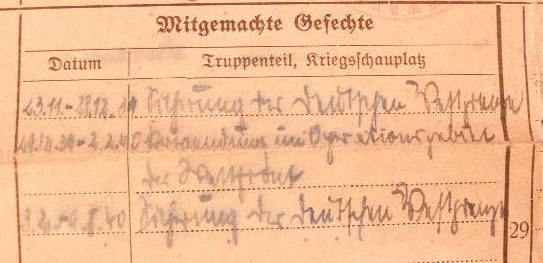 Mitgemachte Gefechte
Datum Truppenteil, Kriegsschauplatz
23.11.-28.12.39 Sicherung der deutschen Westgrenze
29.12.39-2.2.40 Verwendung im Operationsgebiet
der Westfront
Sicherung der deutschen Westgrenze
29